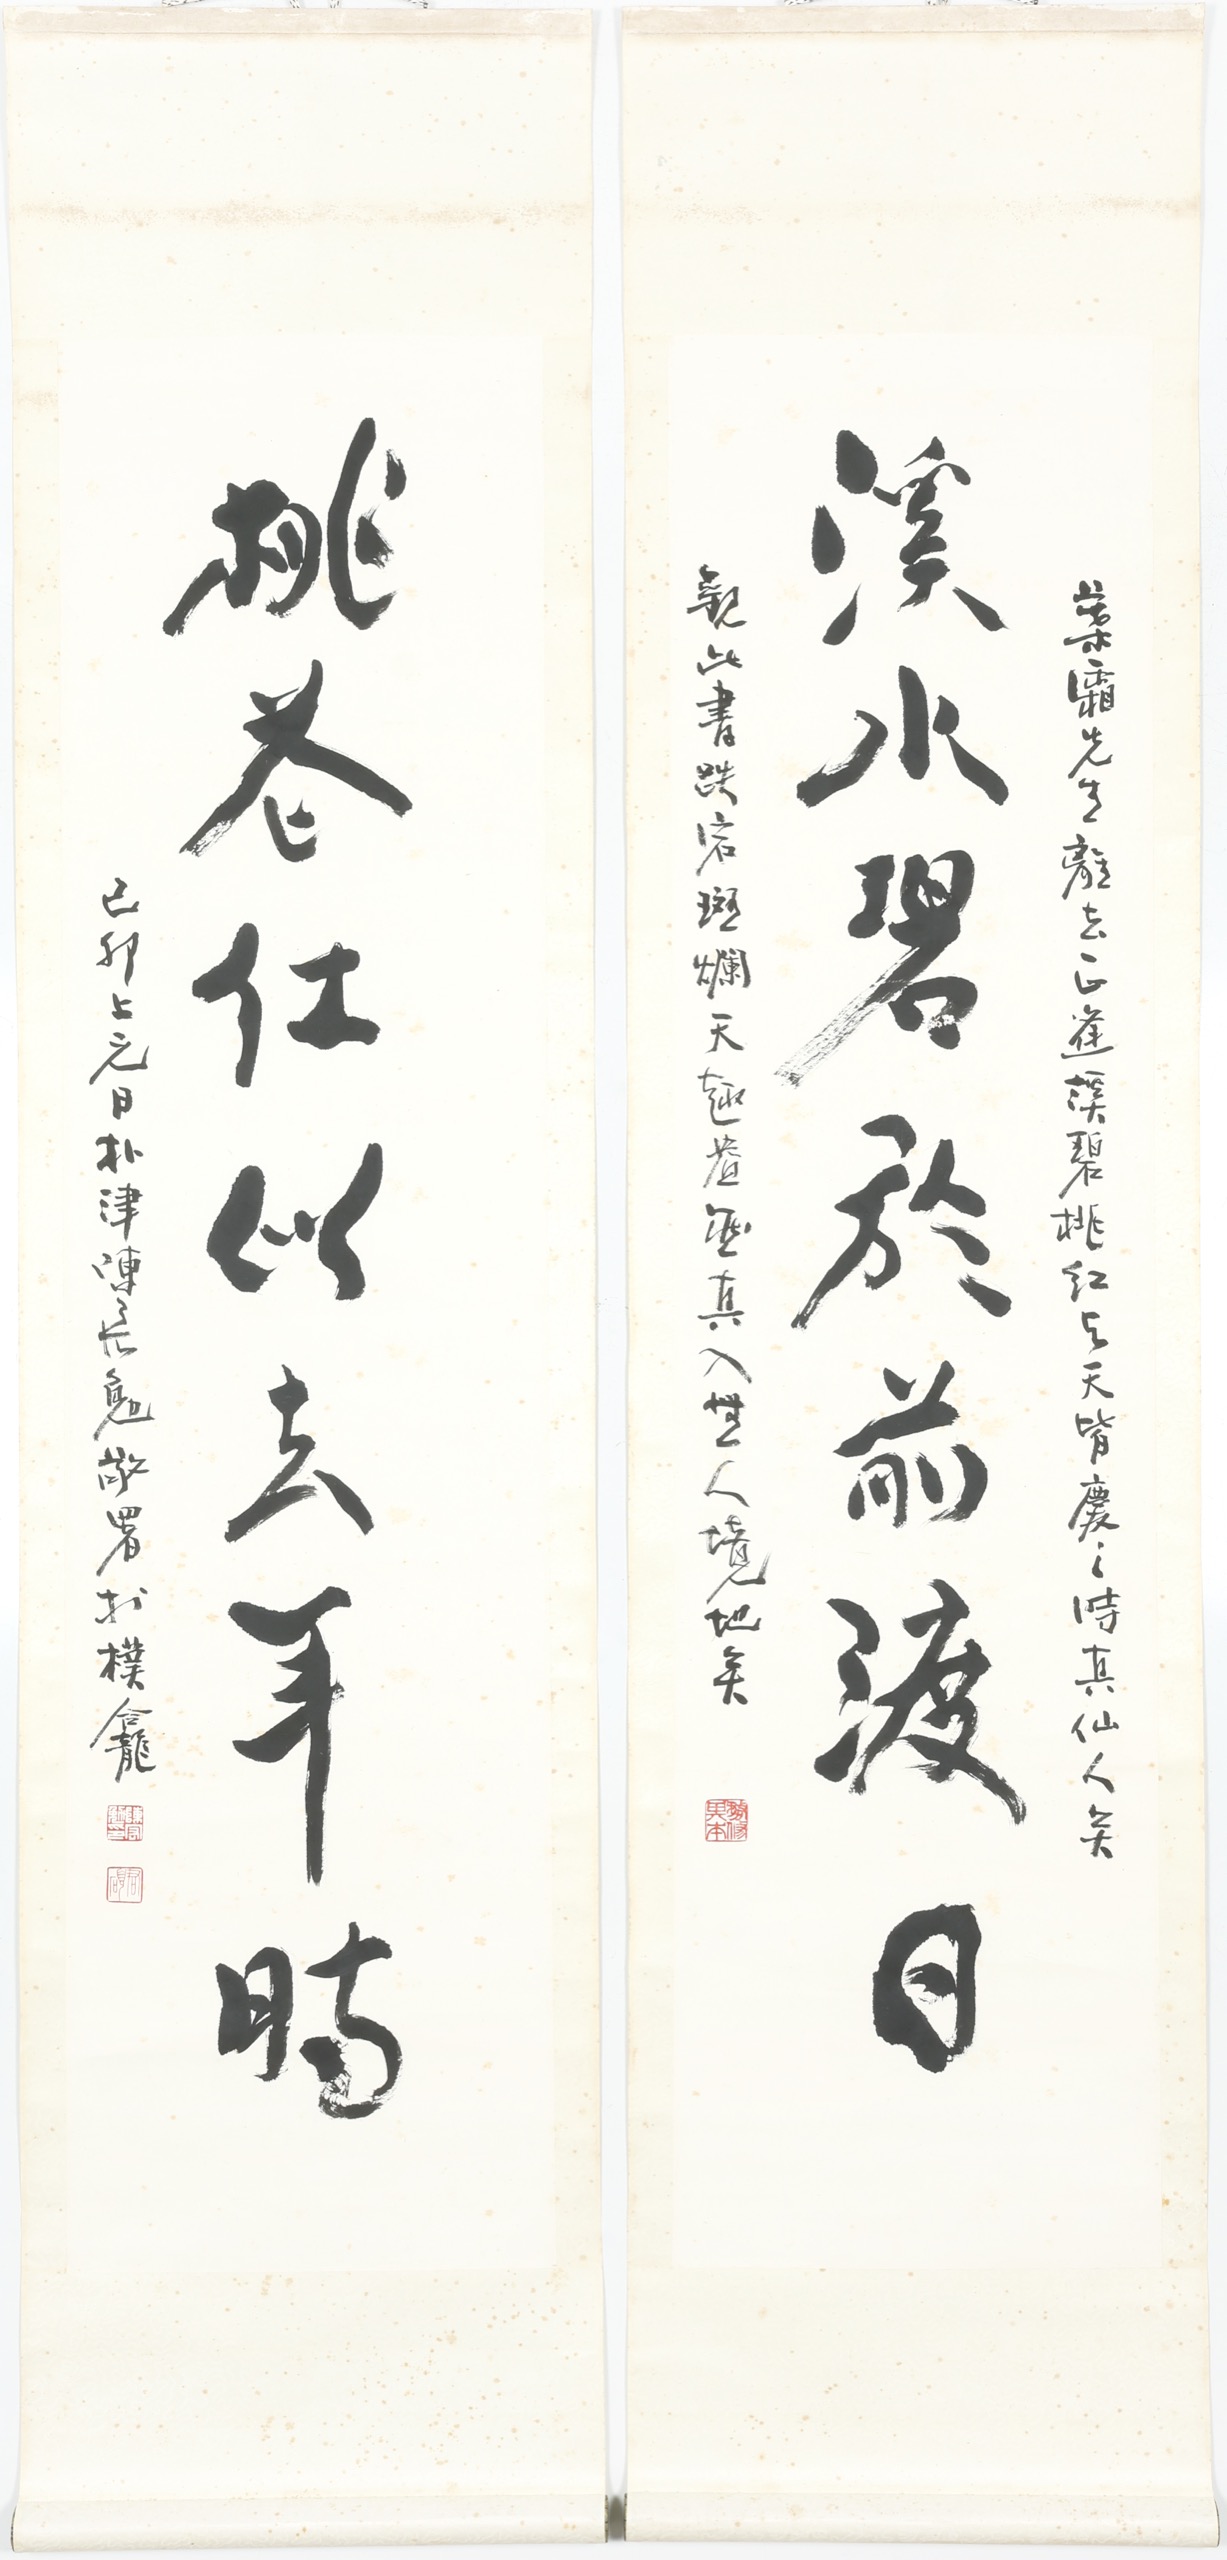 葉霜先生離去正逢溪碧桃紅与天皆慶之時真仙人矣
溪水碧於前渡日
觀此書跌宕斑爛天趣盎然真入無人境地矣
桃花紅似去年時
己卯上元日朴津陳長勉敬署於樸龕